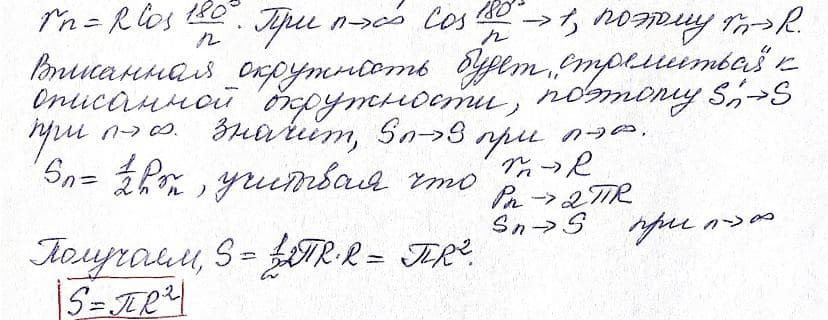 rn = R Cos 180°/n. При n→∞ Cos 180°/n → 1, поэтому rn→R.
Вписанная окружность будет „стремиться" к
описанной окружности, поэтому S'n→S
при n→∞. Значит, Sn→S при n→∞.
Sn = 1/2 Pn rn, учитывая что rn→R
Pn→2πR
Sn→S при n→∞
Получаем, S = 1/2 2πR·R = πR².
S = πR²